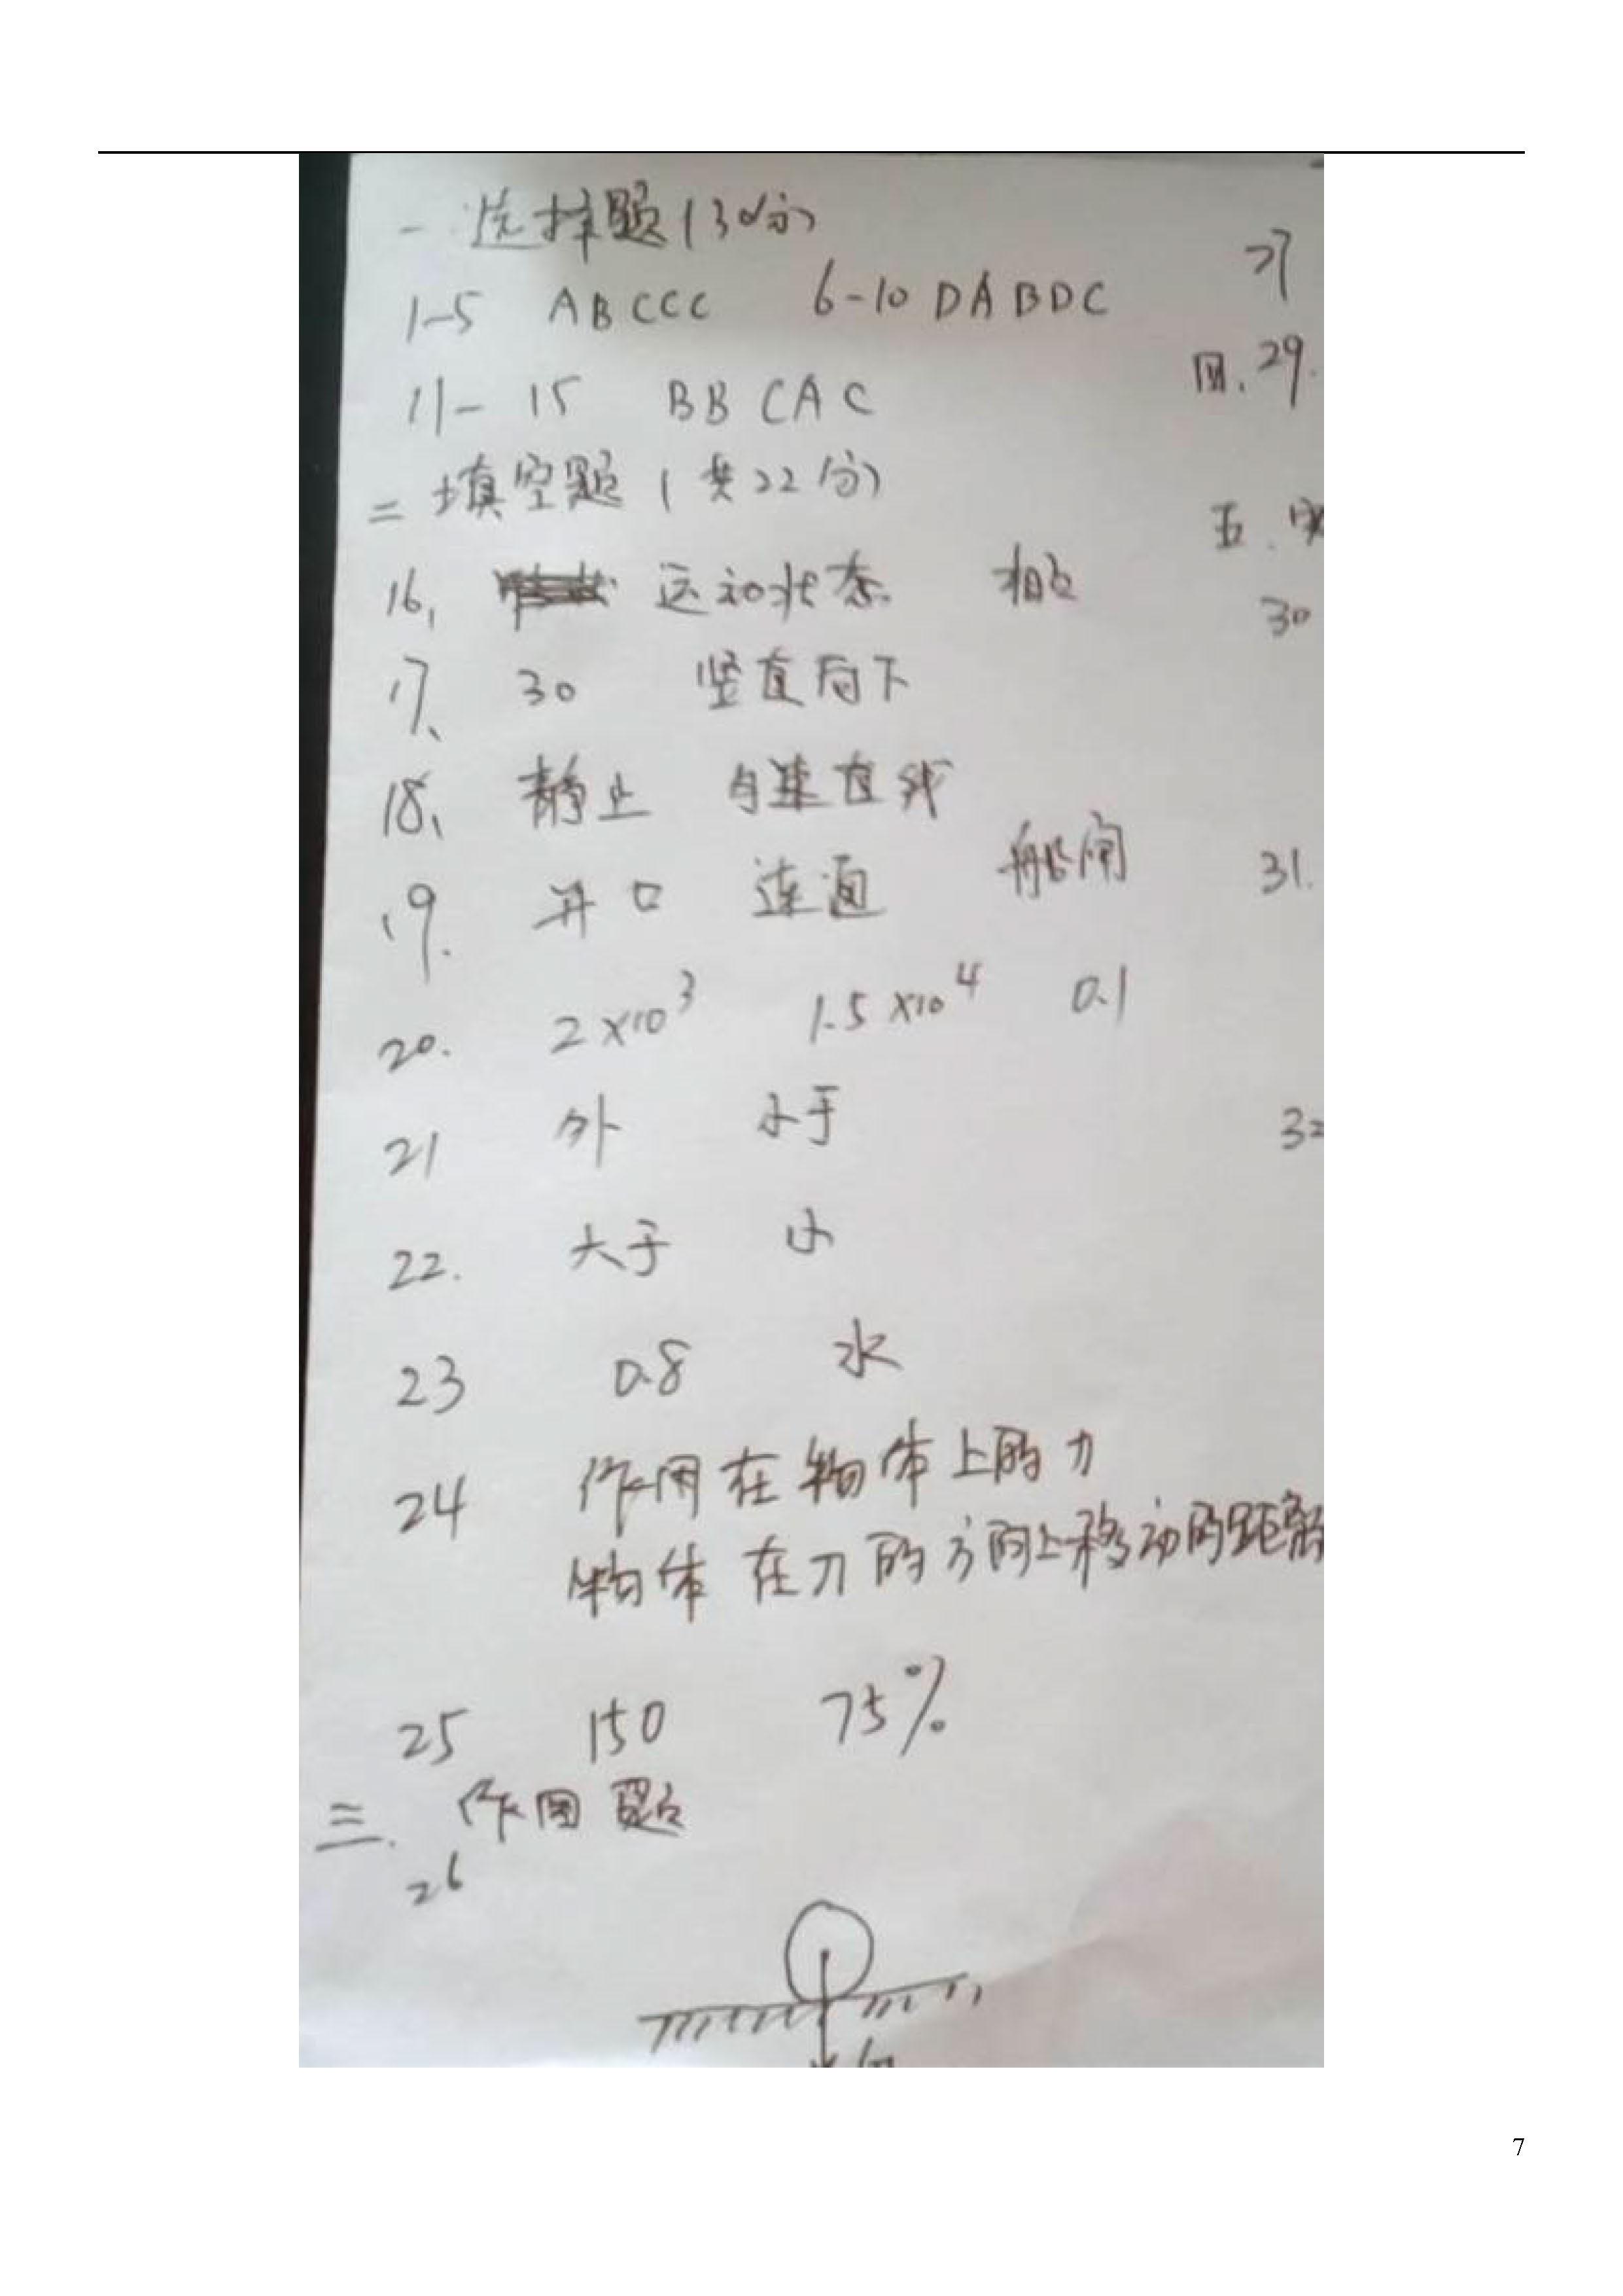 一 选择题(30分)
1-5 ABCCC 6-10 DABDC
11-15 BBCAC
二 填空题(共22分)
16、 运动状态 相互
17、 30 竖直向下
18、 静止 匀速直线
19. 开口 连通 船闸
20. 2×10³ 1.5×10⁴ 0.1
21 外 小于
22. 大于 小
23 0.8 水
24 作用在物体上的力
物体在力的方向上移动的距离
25 150 75%
三. 作图题
26
27
四. 29.
五.
30
31.
32
7